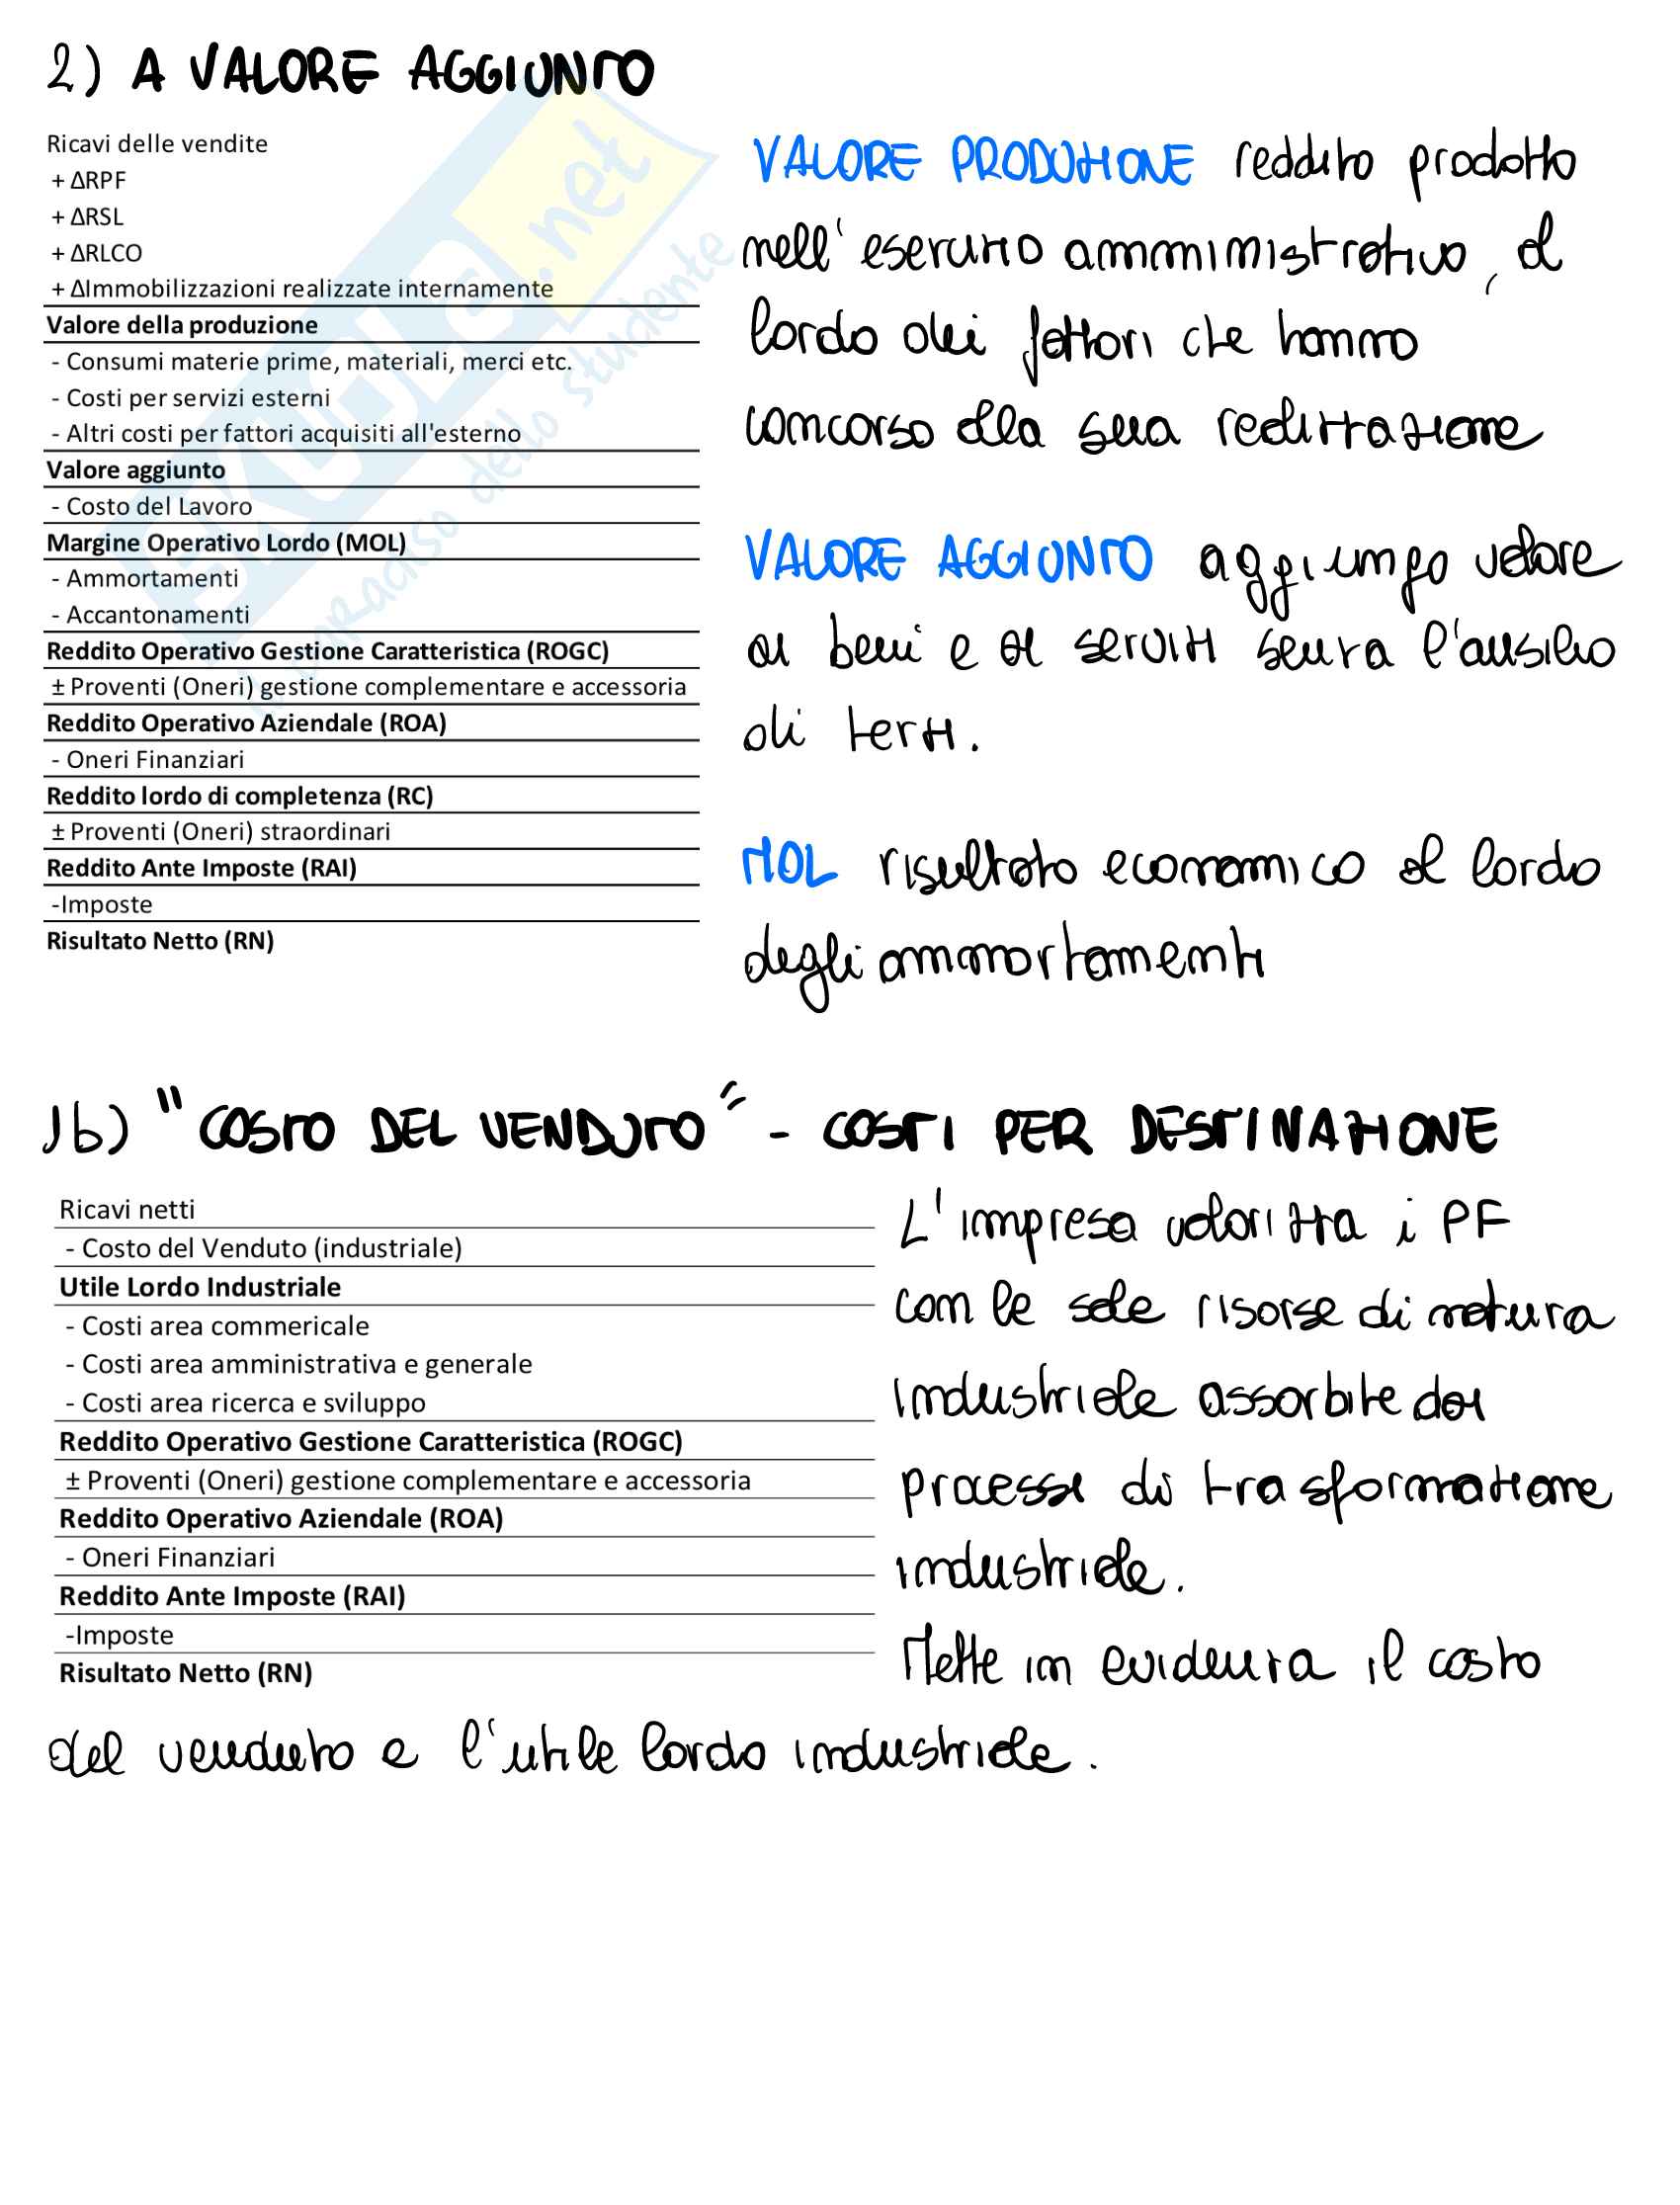 2) A VALORE AGGIUNTO
Ricavi delle vendite
+ ΔRPF
+ ΔRSL
+ ΔRLCO
+ ΔImmobilizzazioni realizzate internamente
Valore della produzione
- Consumi materie prime, materiali, merci etc.
- Costi per servizi esterni
- Altri costi per fattori acquisiti all'esterno
Valore aggiunto
- Costo del Lavoro
Margine Operativo Lordo (MOL)
- Ammortamenti
- Accantonamenti
Reddito Operativo Gestione Caratteristica (ROGC)
± Proventi (Oneri) gestione complementare e accessoria
Reddito Operativo Aziendale (ROA)
- Oneri Finanziari
Reddito lordo di completenza (RC)
± Proventi (Oneri) straordinari
Reddito Ante Imposte (RAI)
-Imposte
Risultato Netto (RN)
VALORE PRODUZIONE reddito prodotto
nell'esercizio amministrativo, al
lordo dei fattori che hanno
concorso alla sua realizzazione
VALORE AGGIUNTO aggiungo valore
ai beni e ai servizi senza l'ausilio
di terzi.
MOL risultato economico al lordo
degli ammortamenti
SKUOLA.net
il paradiso dello studente
1b) "COSTO DEL VENDUTO" - COSTI PER DESTINAZIONE
Ricavi netti
- Costo del Venduto (industriale)
Utile Lordo Industriale
- Costi area commericale
- Costi area amministrativa e generale
- Costi area ricerca e sviluppo
Reddito Operativo Gestione Caratteristica (ROGC)
± Proventi (Oneri) gestione complementare e accessoria
Reddito Operativo Aziendale (ROA)
- Oneri Finanziari
Reddito Ante Imposte (RAI)
-Imposte
Risultato Netto (RN)
L'impresa valorizza i PF
con le sole risorse di natura
industriale assorbite dai
processi di trasformazione
industriale.
Mette in evidenza il costo
del venduto e l'utile lordo industriale.